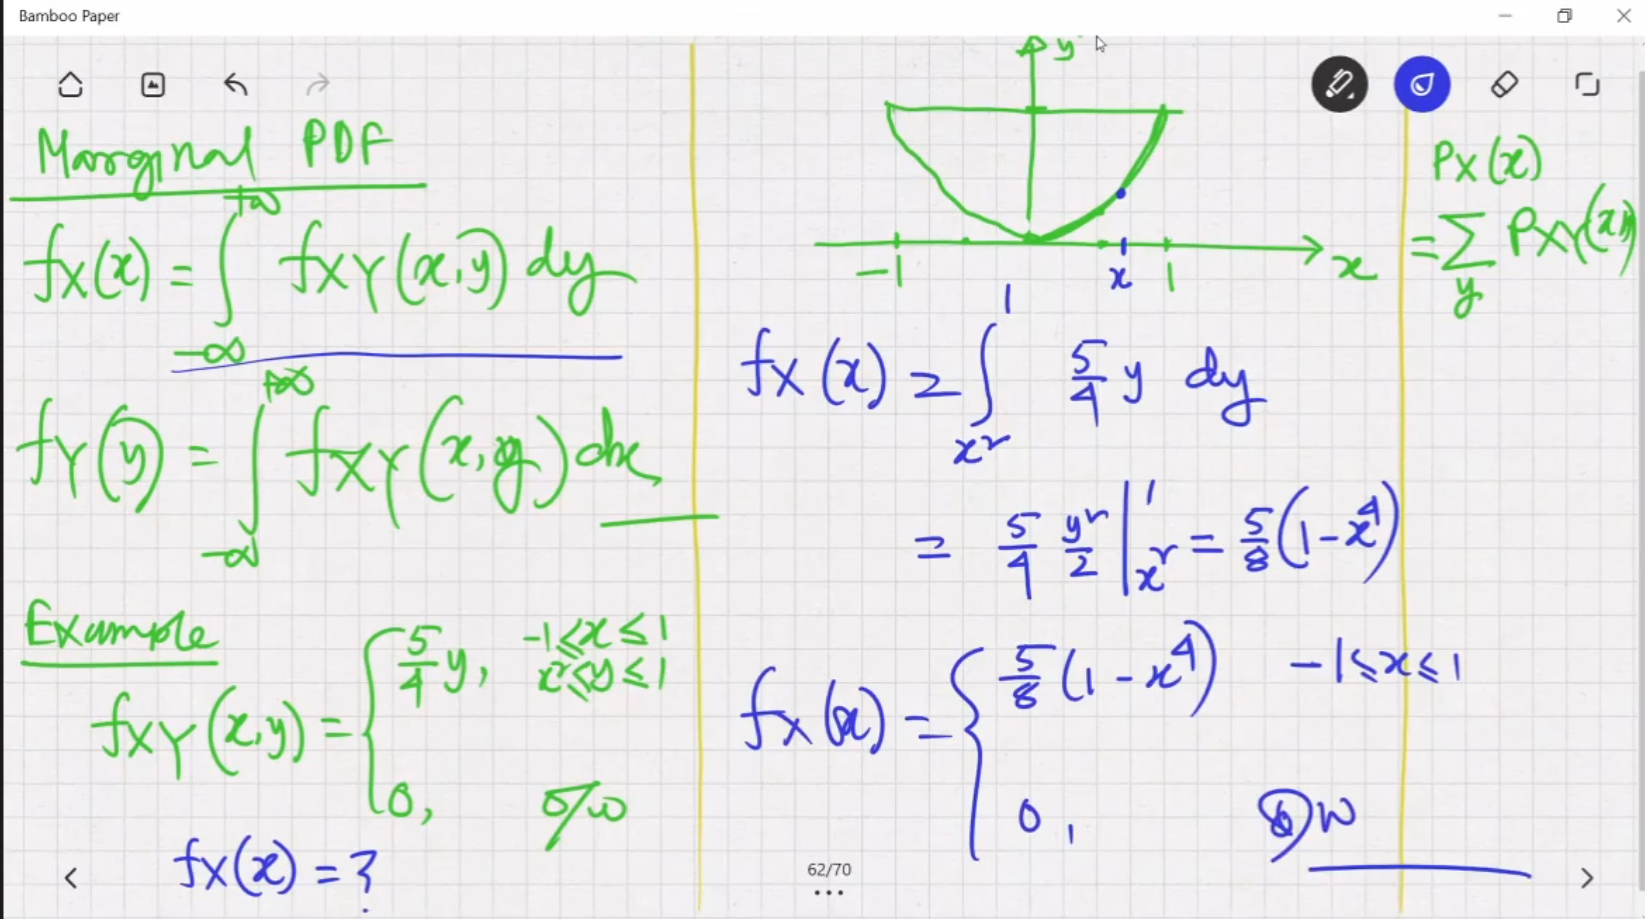 Bamboo Paper
Marginal PDF
fX(x) = ∫_{-∞}^{+∞} fXY(x,y) dy
fY(y) = ∫_{-∞}^{+∞} fXY(x,y) dx
Example
fXY(x,y) = { 5/4 y, -1≤x≤1
x²≤y≤1
0, o/w
fX(x) = ?
y
-1 x 1 x
fX(x) = ∫_{x²}^{1} 5/4 y dy
= 5/4 y²/2 |_{x²}^{1} = 5/8 (1-x⁴)
fX(x) = { 5/8 (1-x⁴) -1≤x≤1
0, o/w
PX(x)
= Σ_y PXY(x,y)
62/70